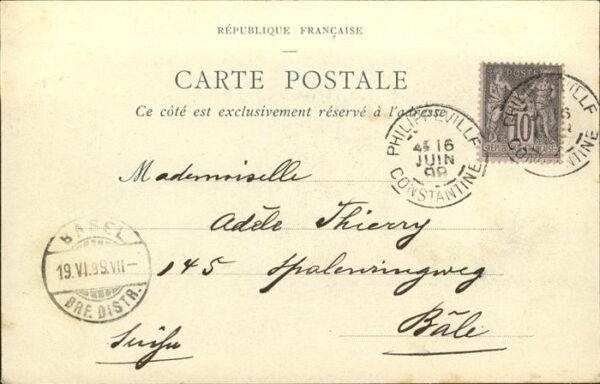 RÉPUBLIQUE FRANÇAISE
CARTE POSTALE
Ce côté est exclusivement réservé à l'adresse
PHILIPPEVILLE
4E 16
JUIN
99
CONSTANTINE
POSTES
10
RÉPUBLIQUE FRANÇAISE
PHILIPPEVILLE
CONSTANTINE
Mademoiselle
Adèle Thierry
145 Spalenringweg
Bâle
Suisse
BASEL
19.VI.99.VII-
BRF. DISTR.